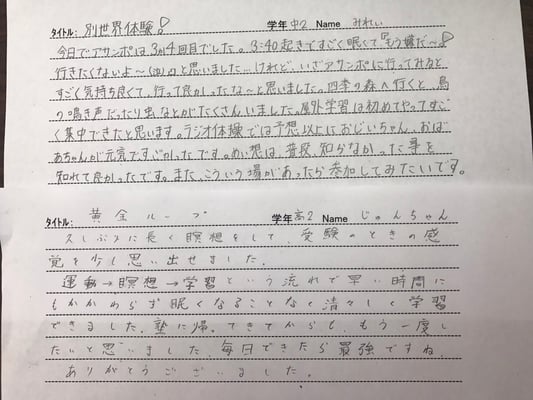 タイトル: 別世界体験! 学年 中2 Name みれい
今日でアサンポは3か4回目でした。3:40起きですごく眠くて『もう嫌だ〜
行きたくないよ〜(泣)』と思いました…けれど、いざアサンポに行ってみると
すごく気持ち良くて、行って良かったな〜と思いました。四季の森へ行くと、鳥
の鳴き声だったり虫などがたくさんいました。屋外学習は初めてやってすご
く集中できたと思います。ラジオ体操では予想以上におじいちゃん、おば
あちゃんが元気ですごかったです。めい想は、普段、知らなかった事を
知れて良かったです。また、こういう場があったら参加してみたいです。
タイトル: 黄金ループ 学年 高2 Name じゅんちゃん
久しぶりに長く瞑想をして、受験のときの感
覚を少し思い出せました。
運動→瞑想→学習という流れで早い時間に
もかかわらず眠くなることなく清々しく学習
できました。塾に帰ってきてからも、もう一度し
たいと思いました。毎日できたら最強ですね。
ありがとうございました。